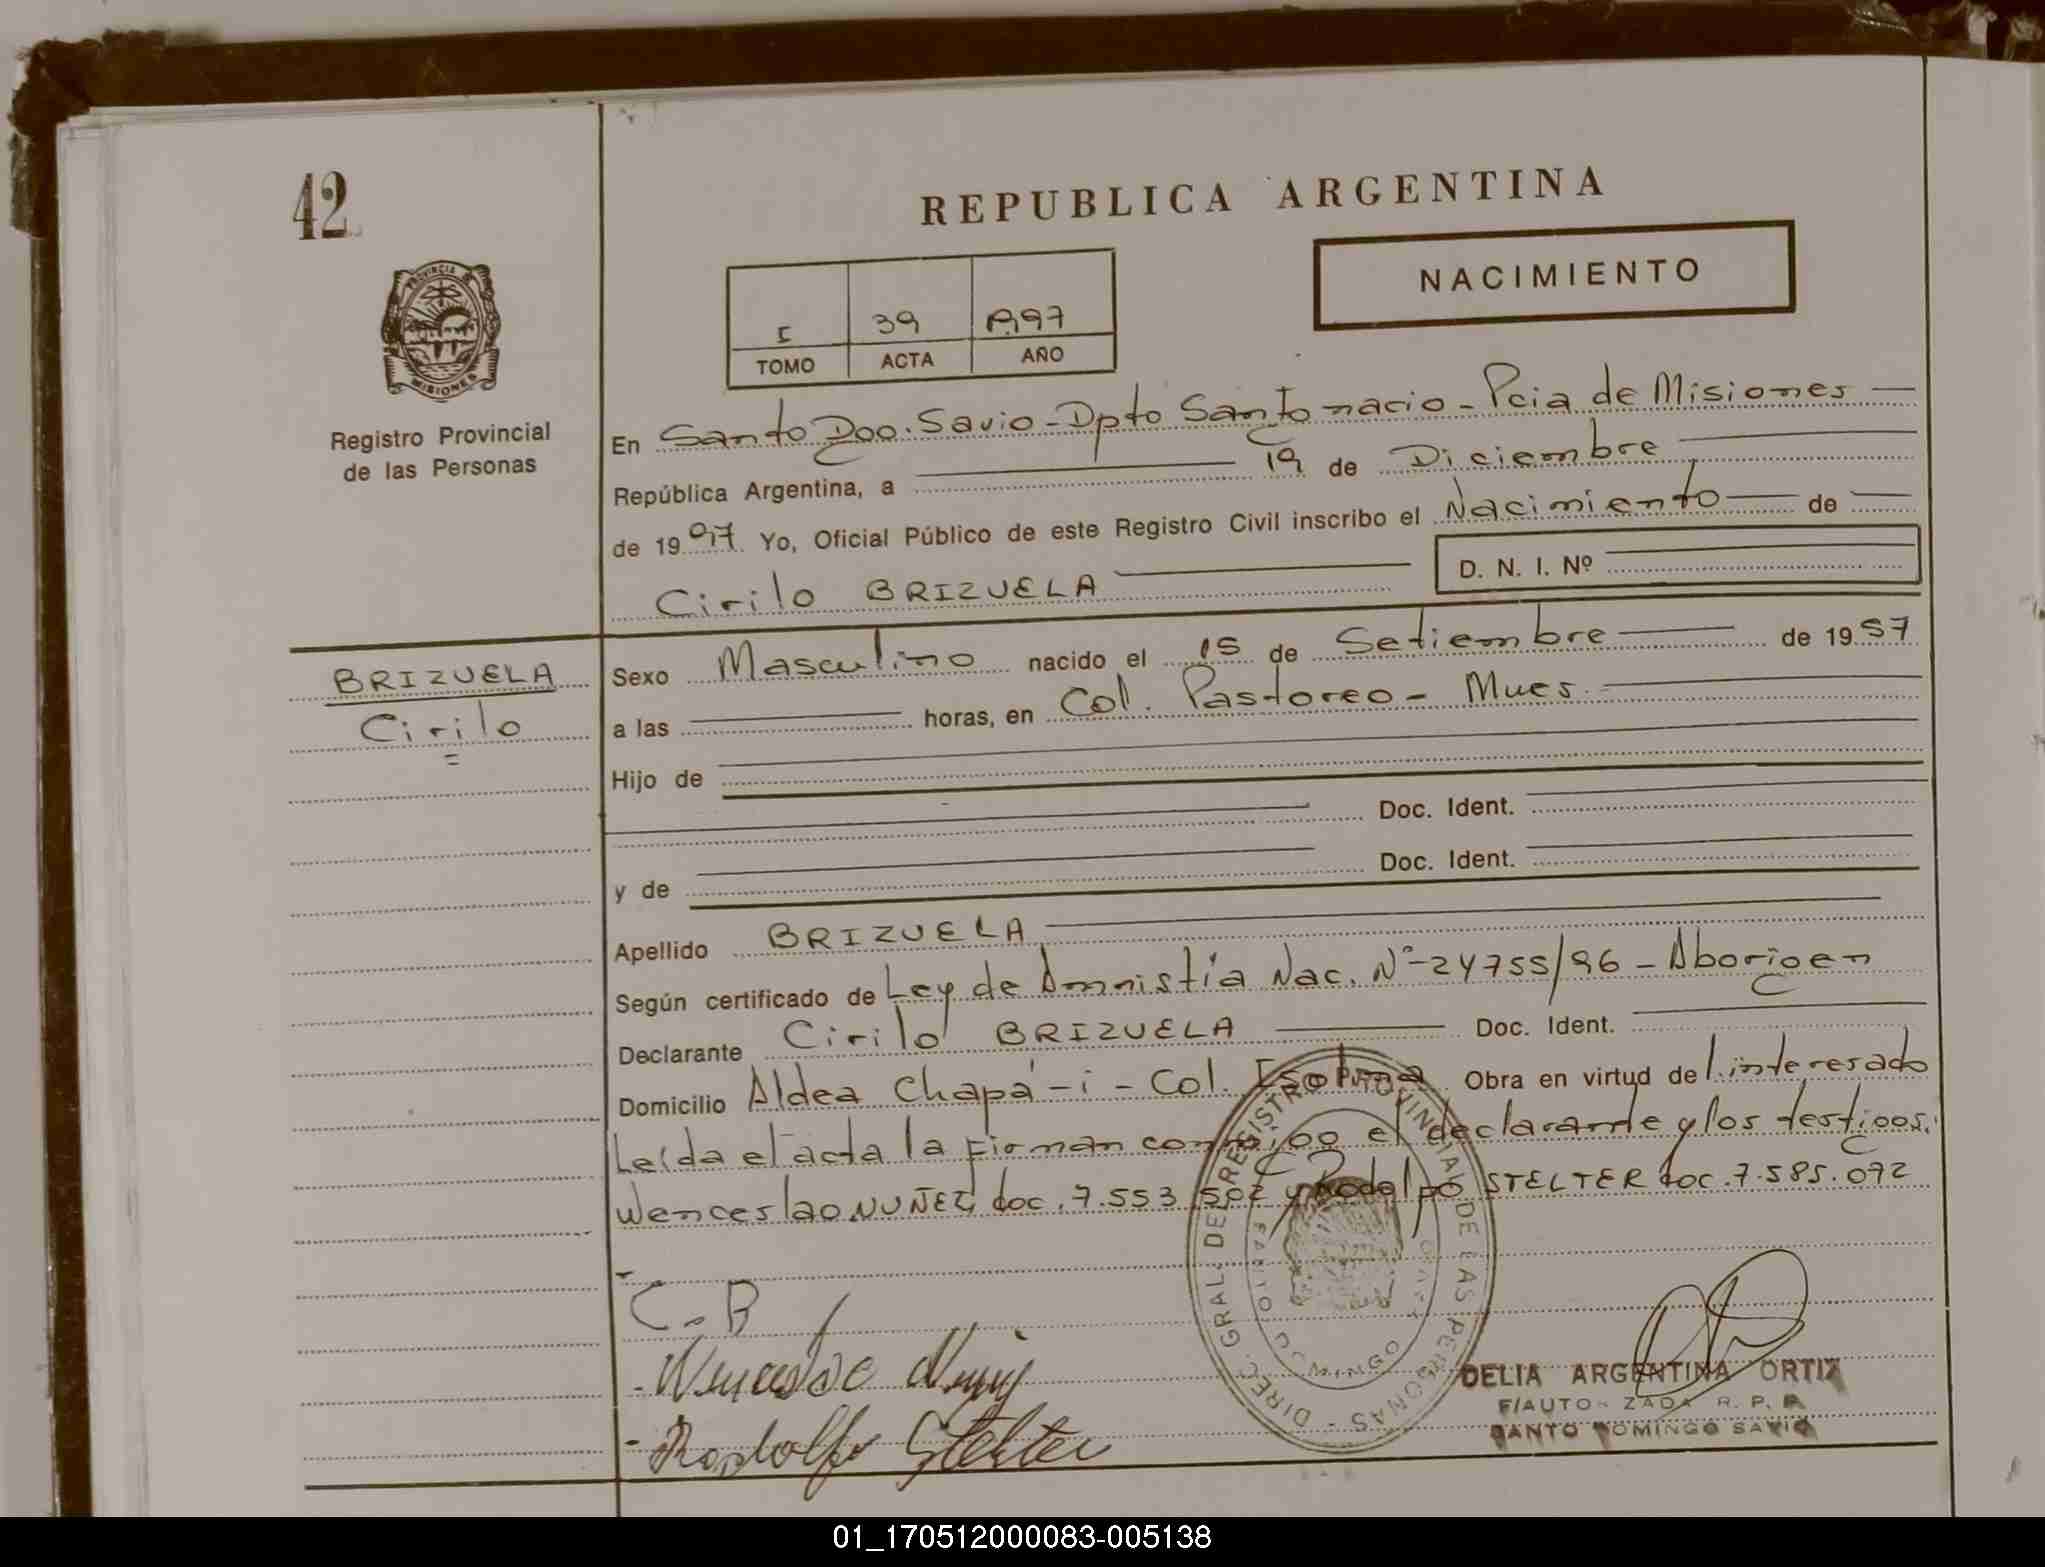 42
REPUBLICA ARGENTINA
NACIMIENTO
I 39 1997
TOMO ACTA AÑO
PROVINCIA DE MISIONES
Registro Provincial
de las Personas
En Santo Dgo. Savio - Dpto San Ignacio - Pcia de Misiones
República Argentina, a 19 de Diciembre
de 1997 Yo, Oficial Público de este Registro Civil inscribo el Nacimiento de
Cirilo BRIZUELA D. N. I. Nº
BRIZUELA
Cirilo
Sexo Masculino nacido el 15 de Setiembre de 1957
a las horas, en Col. Pastoreo - Mnes.
Hijo de
Doc. Ident.
y de Doc. Ident.
Apellido BRIZUELA
Según certificado de Ley de Amnistía Nac. Nº 24755/96 - Aborigen
Declarante Cirilo BRIZUELA Doc. Ident.
Domicilio Aldea Chapá-i - Col. Isolina Obra en virtud del interesado
Leída el acta la firman conmigo el declarante y los testigos.
Wenceslao NUÑEZ doc. 7.553.502 y Rodolfo STELTER doc. 7.585.072
C-B
Rodolfo Stelter
DIREC. GRAL. DE REGISTRO PROVINCIAL DE LAS PERSONAS
DELIA ARGENTINA ORTIZ
F/AUTORIZADA R. P. P.
SANTO DOMINGO SAVIO
01_170512000083-005138